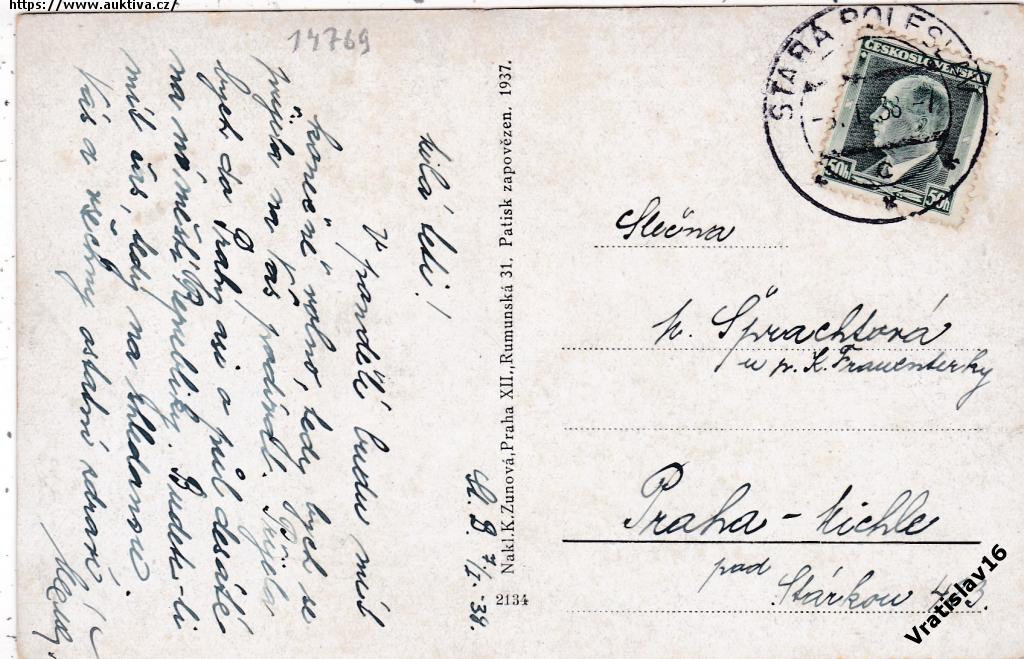 https://www.auktiva.cz/
14769
St. B. 7/I. 38.
Milá teti!
V pondělí budu míti
konečně volno, tedy bych se
přijela na Váš podívat. Přijela
bych do Prahy asi o půl desáté
na náměstí Republiky. Budete-li
míti čas, tedy na shledanou
Vás a všechny ostatní zdraví
Nakl.K.Zunová,Praha XII.,Rumunská 31. Patisk zapovězen. 1937.
2134
STARÁ BOLESLAV
ČESKOSLOVENSKO
50h 50h
Slečna
Šprachtová
u p. K. Frauenterky
Praha - Michle
pod
Stárkou 43.
Vratislav16